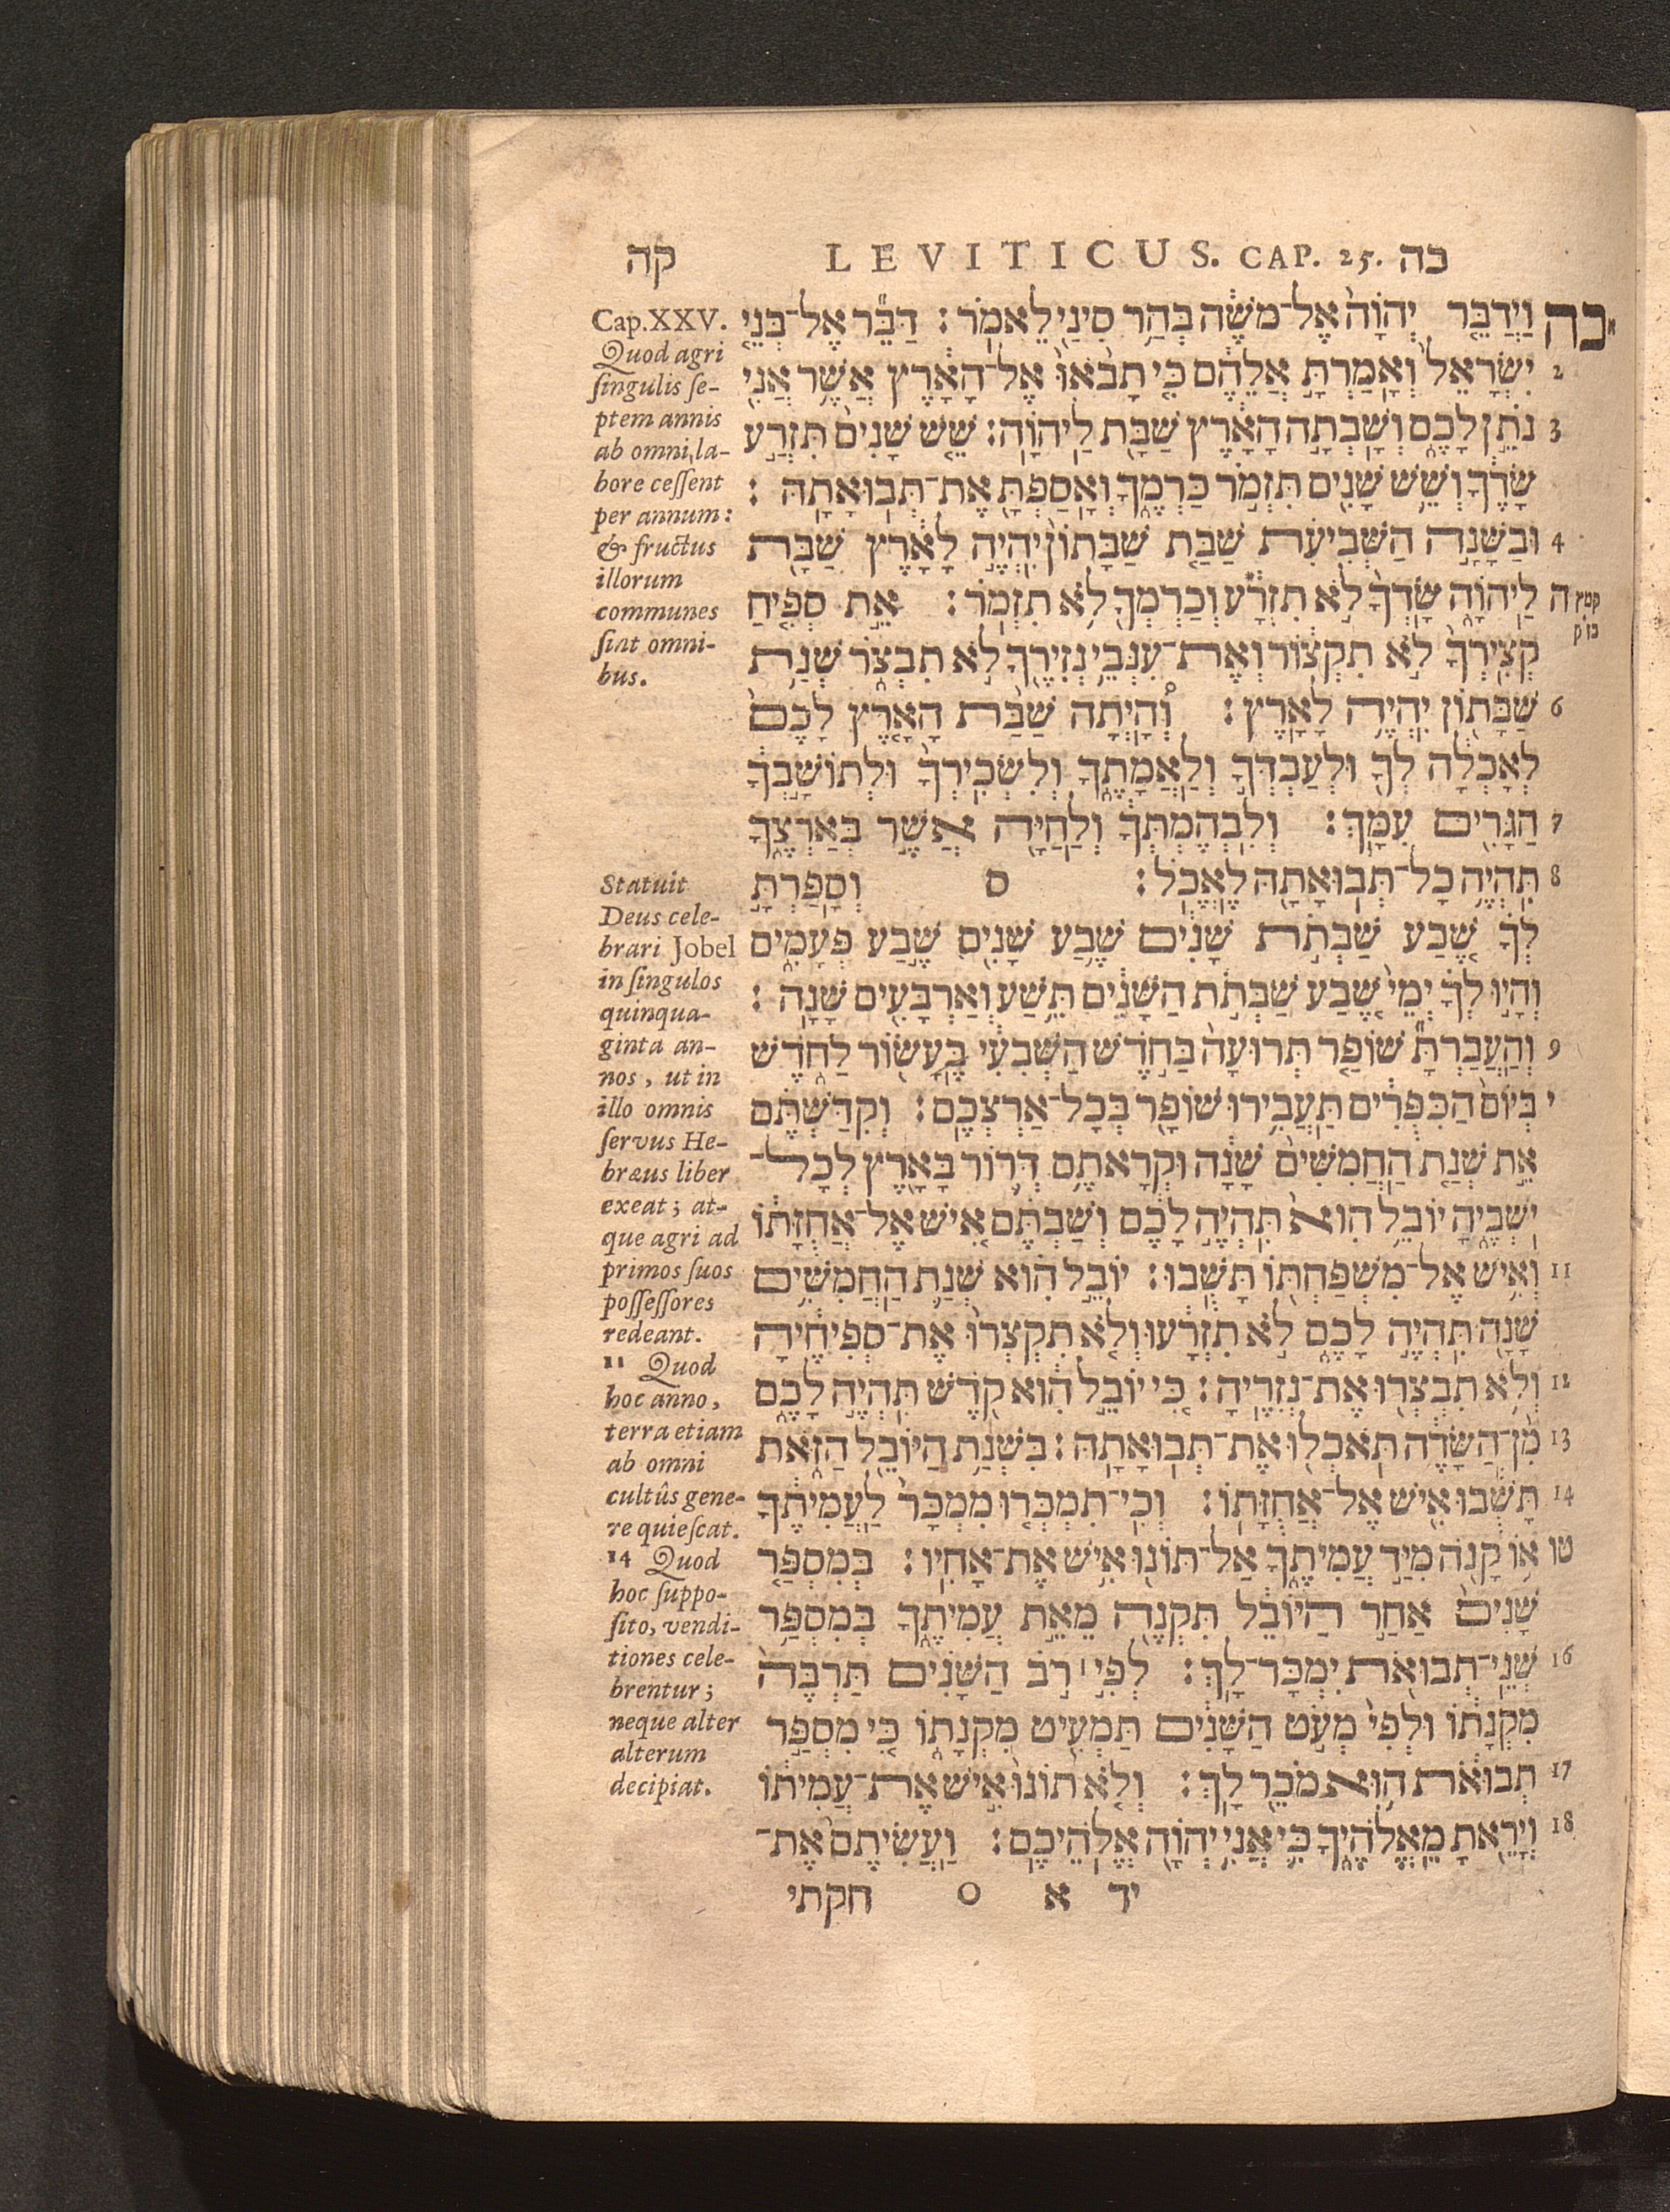 קה LEVITICUS. CAP. 25. כה
כה א וַיְדַבֵּ֤ר יְהוָֹה֙ אֶל־מֹשֶׁ֔ה בְּהַ֥ר סִינַ֖י לֵאמֹֽר׃ דַּבֵּ֞ר אֶל־בְּנֵ֤י
2 יִשְׂרָאֵל֙ וְאָמַרְתָּ֣ אֲלֵהֶ֔ם כִּ֤י תָבֹ֙אוּ֙ אֶל־הָאָ֔רֶץ אֲשֶׁ֥ר אֲנִ֖י
3 נֹתֵ֣ן לָכֶ֑ם וְשָׁבְתָ֣ה הָאָ֔רֶץ שַׁבָּ֖ת לַיהוָֹֽה׃ שֵׁ֤שׁ שָׁנִים֙ תִּזְרַ֣ע
שָׂדֶ֔ךָ וְשֵׁ֥שׁ שָׁנִ֖ים תִּזְמֹ֣ר כַּרְמֶ֑ךָ וְאָסַפְתָּ֖ אֶת־תְּבוּאָתָֽהּ׃
4 וּבַשָּׁנָ֣ה הַשְּׁבִיעִ֗ת שַׁבַּ֤ת שַׁבָּתוֹן֙ יִהְיֶ֣ה לָאָ֔רֶץ שַׁבָּ֖ת
ה לַיהוָֹ֑ה שָֽׂדְךָ֙ לֹ֣א תִזְרָ֔ע וְכַרְמְךָ֖ לֹ֥א תִזְמֹֽר׃ אֵ֣ת סְפִ֤יחַ
קמץ
בז״ק
קְצִֽירְךָ֙ לֹ֣א תִקְצ֔וֹר וְאֶת־עִנְּבֵ֥י נְזִירֶ֖ךָ לֹ֣א תִבְצֹ֑ר שְׁנַ֥ת
6 שַׁבָּת֖וֹן יִהְיֶ֥ה לָאָֽרֶץ׃ וְ֠הָיְתָה שַׁבַּ֨ת הָאָ֤רֶץ לָכֶם֙
לְאָכְלָ֔ה לְךָ֖ וּלְעַבְדְּךָ֣ וְלַאֲמָתֶ֑ךָ וְלִשְׂכִֽירְךָ֙ וּלְתוֹשָׁ֣בְךָ֔
7 הַגָּרִ֖ים עִמָּֽךְ׃ וְלִ֨בְהֶמְתְּךָ֔ וְלַחַיָּ֖ה אֲשֶׁ֣ר בְּאַרְצֶ֑ךָ
8 תִּהְיֶ֥ה כָל־תְּבוּאָתָ֖הּ לֶאֱכֹֽל׃ ס וְסָפַרְתָּ֣
לְךָ֗ שֶׁ֚בַע שַׁבְּתֹ֣ת שָׁנִ֔ים שֶׁ֥בַע שָׁנִ֖ים שֶׁ֣בַע פְּעָמִ֑ים
וְהָי֣וּ לְךָ֗ יְמֵי֙ שֶׁ֚בַע שַׁבְּתֹ֣ת הַשָּׁנִ֔ים תֵּ֥שַׁע וְאַרְבָּעִ֖ים שָׁנָֽה׃
9 וְהַֽעֲבַרְתָּ֞ שׁוֹפַ֤ר תְּרוּעָה֙ בַּחֹ֣דֶשׁ הַשְּׁבִעִ֔י בֶּעָשׂ֖וֹר לַחֹ֑דֶשׁ
י בְּיוֹם֙ הַכִּפֻּרִ֔ים תַּעֲבִ֥ירוּ שׁוֹפָ֖ר בְּכָל־אַרְצְכֶֽם׃ וְקִדַּשְׁתֶּ֗ם
אֵ֣ת שְׁנַ֤ת הַחֲמִשִּׁים֙ שָׁנָ֔ה וּקְרָאתֶ֥ם דְּר֛וֹר בָּאָ֖רֶץ לְכָל־
יֹשְׁבֶ֑יהָ יוֹבֵ֥ל הִוא֙ תִּהְיֶ֣ה לָכֶ֔ם וְשַׁבְתֶּ֗ם אִ֚ישׁ אֶל־אֲחֻזָּת֔וֹ
11 וְאִ֥ישׁ אֶל־מִשְׁפַּחְתּ֖וֹ תָּשֻֽׁבוּ׃ יוֹבֵ֣ל הִ֗וא שְׁנַ֛ת הַחֲמִשִּׁ֥ים
שָׁנָ֖ה תִּהְיֶ֣ה לָכֶ֑ם לֹ֣א תִזְרָ֔עוּ וְלֹ֤א תִקְצְרוּ֙ אֶת־סְפִיחֶ֔יהָ
12 וְלֹ֥א תִבְצְר֖וּ אֶת־נְזִרֶֽיהָ׃ כִּ֚י יוֹבֵ֣ל הִ֔וא קֹ֖דֶשׁ תִּהְיֶ֣ה לָכֶ֑ם
13 מִן־הַ֨שָּׂדֶ֔ה תֹּאכְל֖וּ אֶת־תְּבוּאָתָֽהּ׃ בִּשְׁנַ֥ת הַיּוֹבֵ֖ל הַזֹּ֑את
14 תָּשֻׁ֕בוּ אִ֖ישׁ אֶל־אֲחֻזָּתֽוֹ׃ וְכִֽי־תִמְכְּר֤וּ מִמְכָּר֙ לַעֲמִיתֶ֔ךָ
טו א֥וֹ קָנֹ֖ה מִיַּ֣ד עֲמִיתֶ֑ךָ אַל־תּוֹנ֖וּ אִ֥ישׁ אֶת־אָחִֽיו׃ בְּמִסְפַּ֤ר
שָׁנִים֙ אַחַ֣ר הַיּוֹבֵ֔ל תִּקְנֶ֖ה מֵאֵ֣ת עֲמִיתֶ֑ךָ בְּמִסְפַּ֥ר
16 שְׁנֵֽי־תְבוּאֹ֖ת יִמְכָּר־לָֽךְ׃ לְפִ֣י ׀ רֹ֣ב הַשָּׁנִ֗ים תַּרְבֶּה֙
מִקְנָת֔וֹ וּלְפִי֙ מְעֹ֣ט הַשָּׁנִ֔ים תַּמְעִ֖יט מִקְנָת֑וֹ כִּ֚י מִסְפַּ֣ר
17 תְּבוּאֹ֔ת ה֥וּא מֹכֵ֖ר לָֽךְ׃ וְלֹ֤א תוֹנוּ֙ אִ֣ישׁ אֶת־עֲמִית֔וֹ
18 וְיָרֵ֖אתָ מֵֽאֱלֹהֶ֑יךָ כִּ֛י אֲנִ֥י יְהוָֹ֖ה אֱלֹהֵיכֶֽם׃ וַעֲשִׂיתֶם֙ אֶת־
יד א O חקתי
Cap.XXV.
Quod agri
singulis se-
ptem annis
ab omni la-
bore cessent
per annum:
& fructus
illorum
communes
sint omni-
bus.
Statuit
Deus cele-
brari Jobel
in singulos
quinqua-
ginta an-
nos, ut in
illo omnis
servus He-
bræus liber
exeat; at-
que agri ad
primos suos
possessores
redeant.
11 Quod
hoc anno,
terra etiam
ab omni
cultûs gene-
re quiescat.
14 Quod
hoc suppo-
sito, vendi-
tiones cele-
brentur;
neque alter
alterum
decipiat.